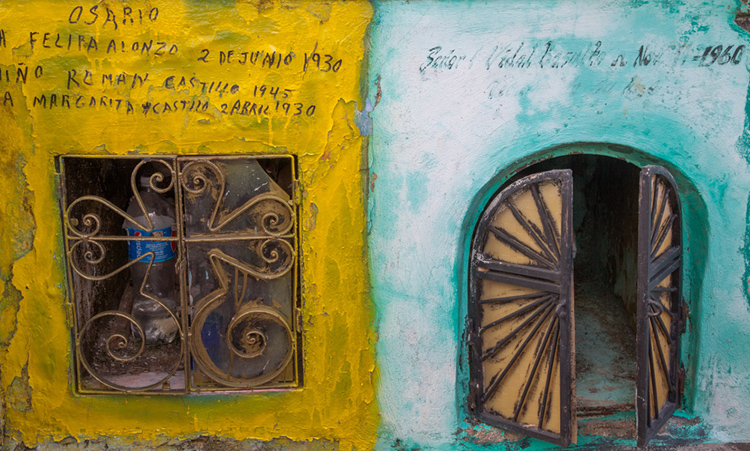 OSARIO
A FELIPA ALONZO 2 DE JUNIO 1930
NIÑO ROMAN CASTILLO 1945
A MARGARITA CASTILLO 2 ABRIL 1930
Señor Vidal 1960